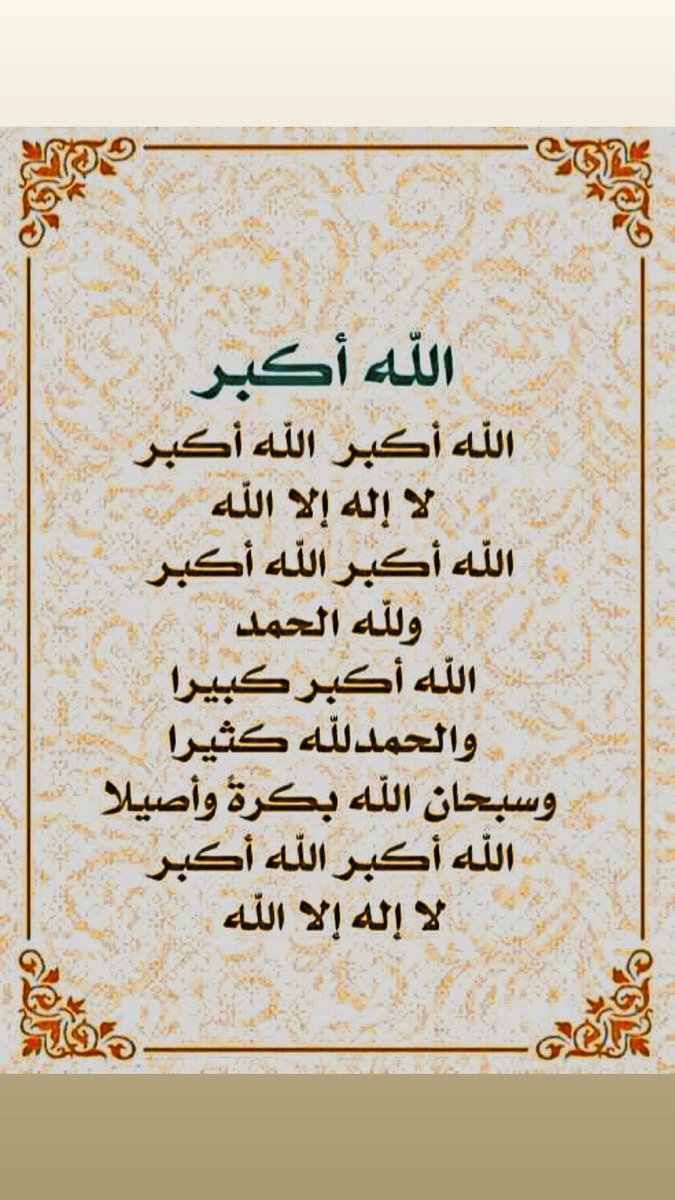 الله أكبر
الله أكبر الله أكبر
لا إله إلا الله
الله أكبر الله أكبر
ولله الحمد
الله أكبر كبيرا
والحمدلله كثيرا
وسبحان الله بكرةً وأصيلا
الله أكبر الله أكبر
لا إله إلا الله